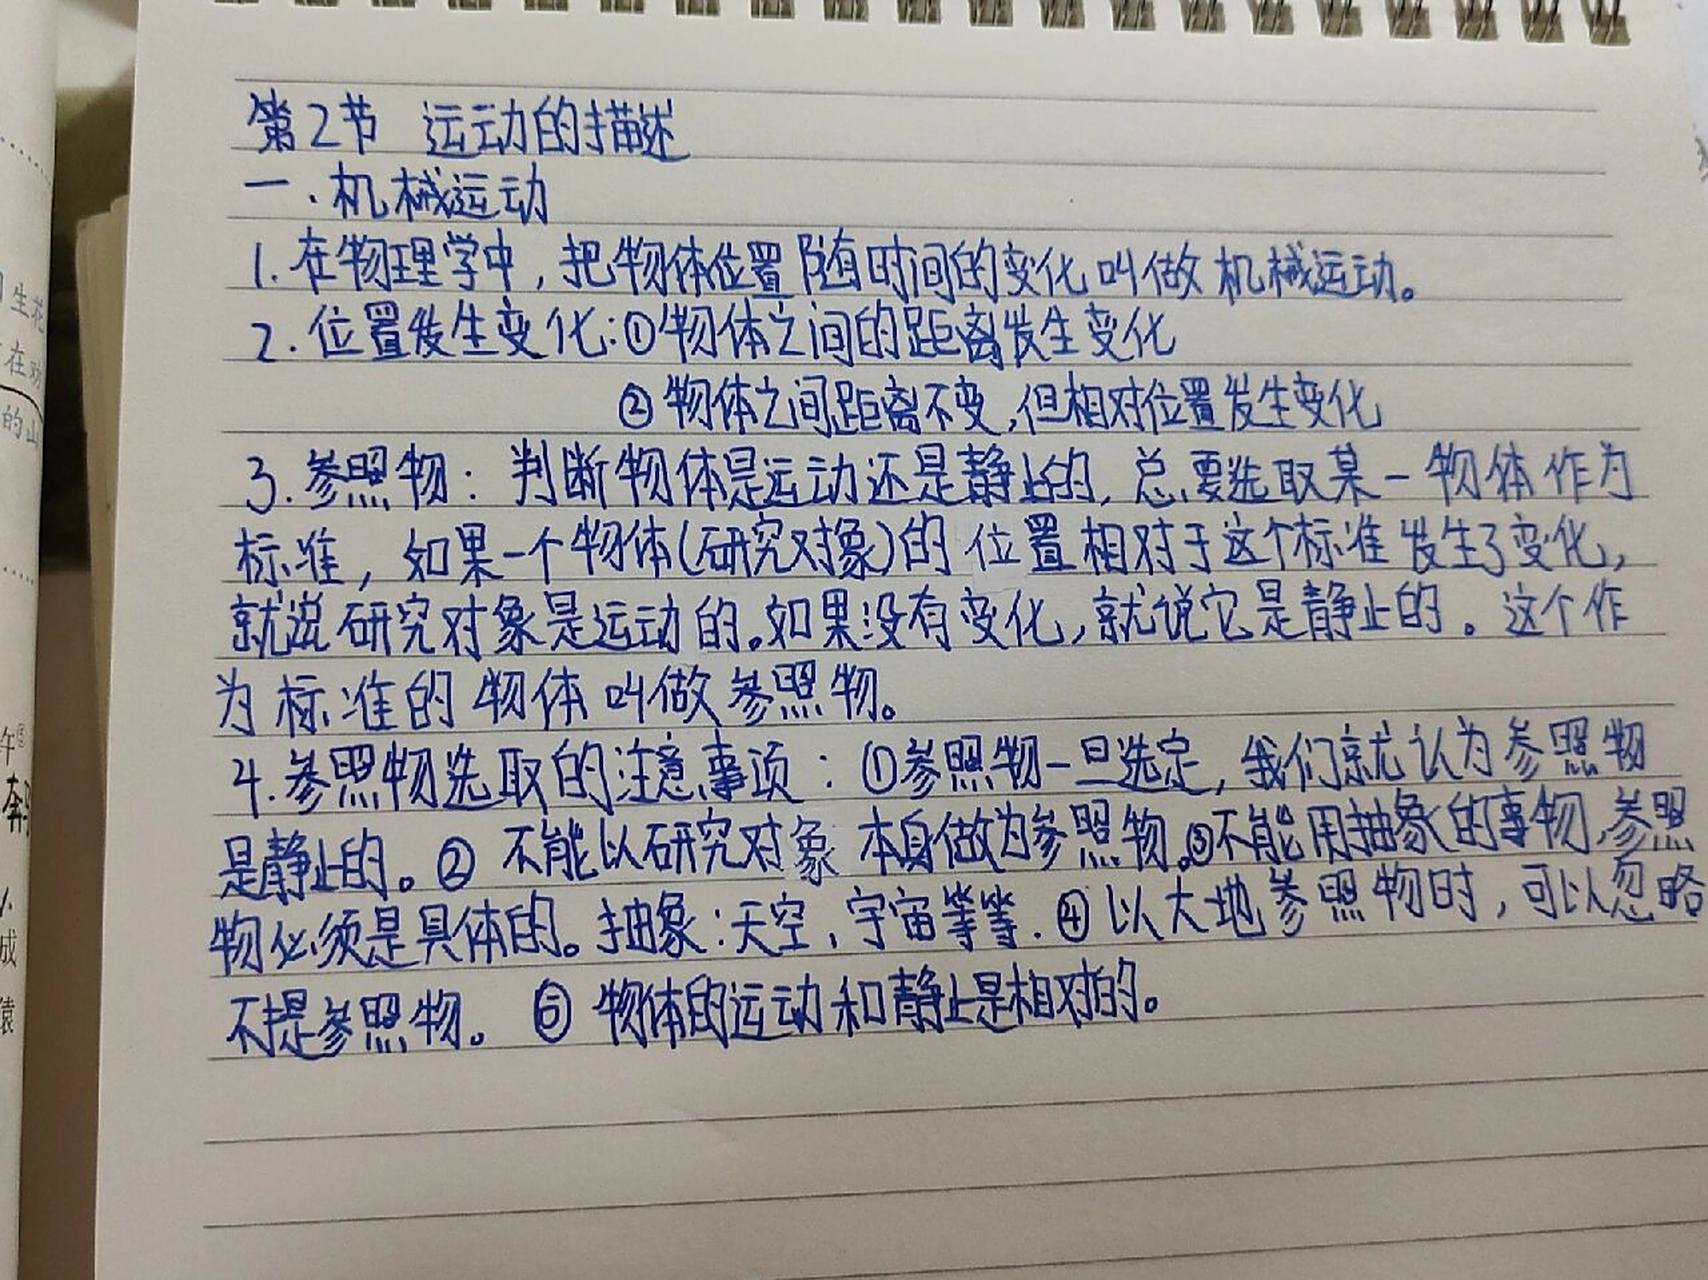 第2节 运动的描述
一.机械运动
1.在物理学中,把物体位置随时间的变化叫做机械运动。
2.位置发生变化:①物体之间的距离发生变化
②物体之间距离不变,但相对位置发生变化
3.参照物:判断物体是运动还是静止的,总要选取某一物体作为
标准,如果一个物体(研究对象)的位置相对于这个标准发生了变化,
就说研究对象是运动的。如果没有变化,就说它是静止的。这个作
为标准的物体叫做参照物。
4.参照物选取的注意事项:①参照物一旦选定,我们就认为参照物
是静止的。②不能以研究对象本身做为参照物。③不能用抽象的事物,参照
物必须是具体的。抽象:天空,宇宙等等.④以大地参照物时,可以忽略
不提参照物。⑤物体的运动和静止是相对的。
生花
在劝
的山
午
奔
成
猿